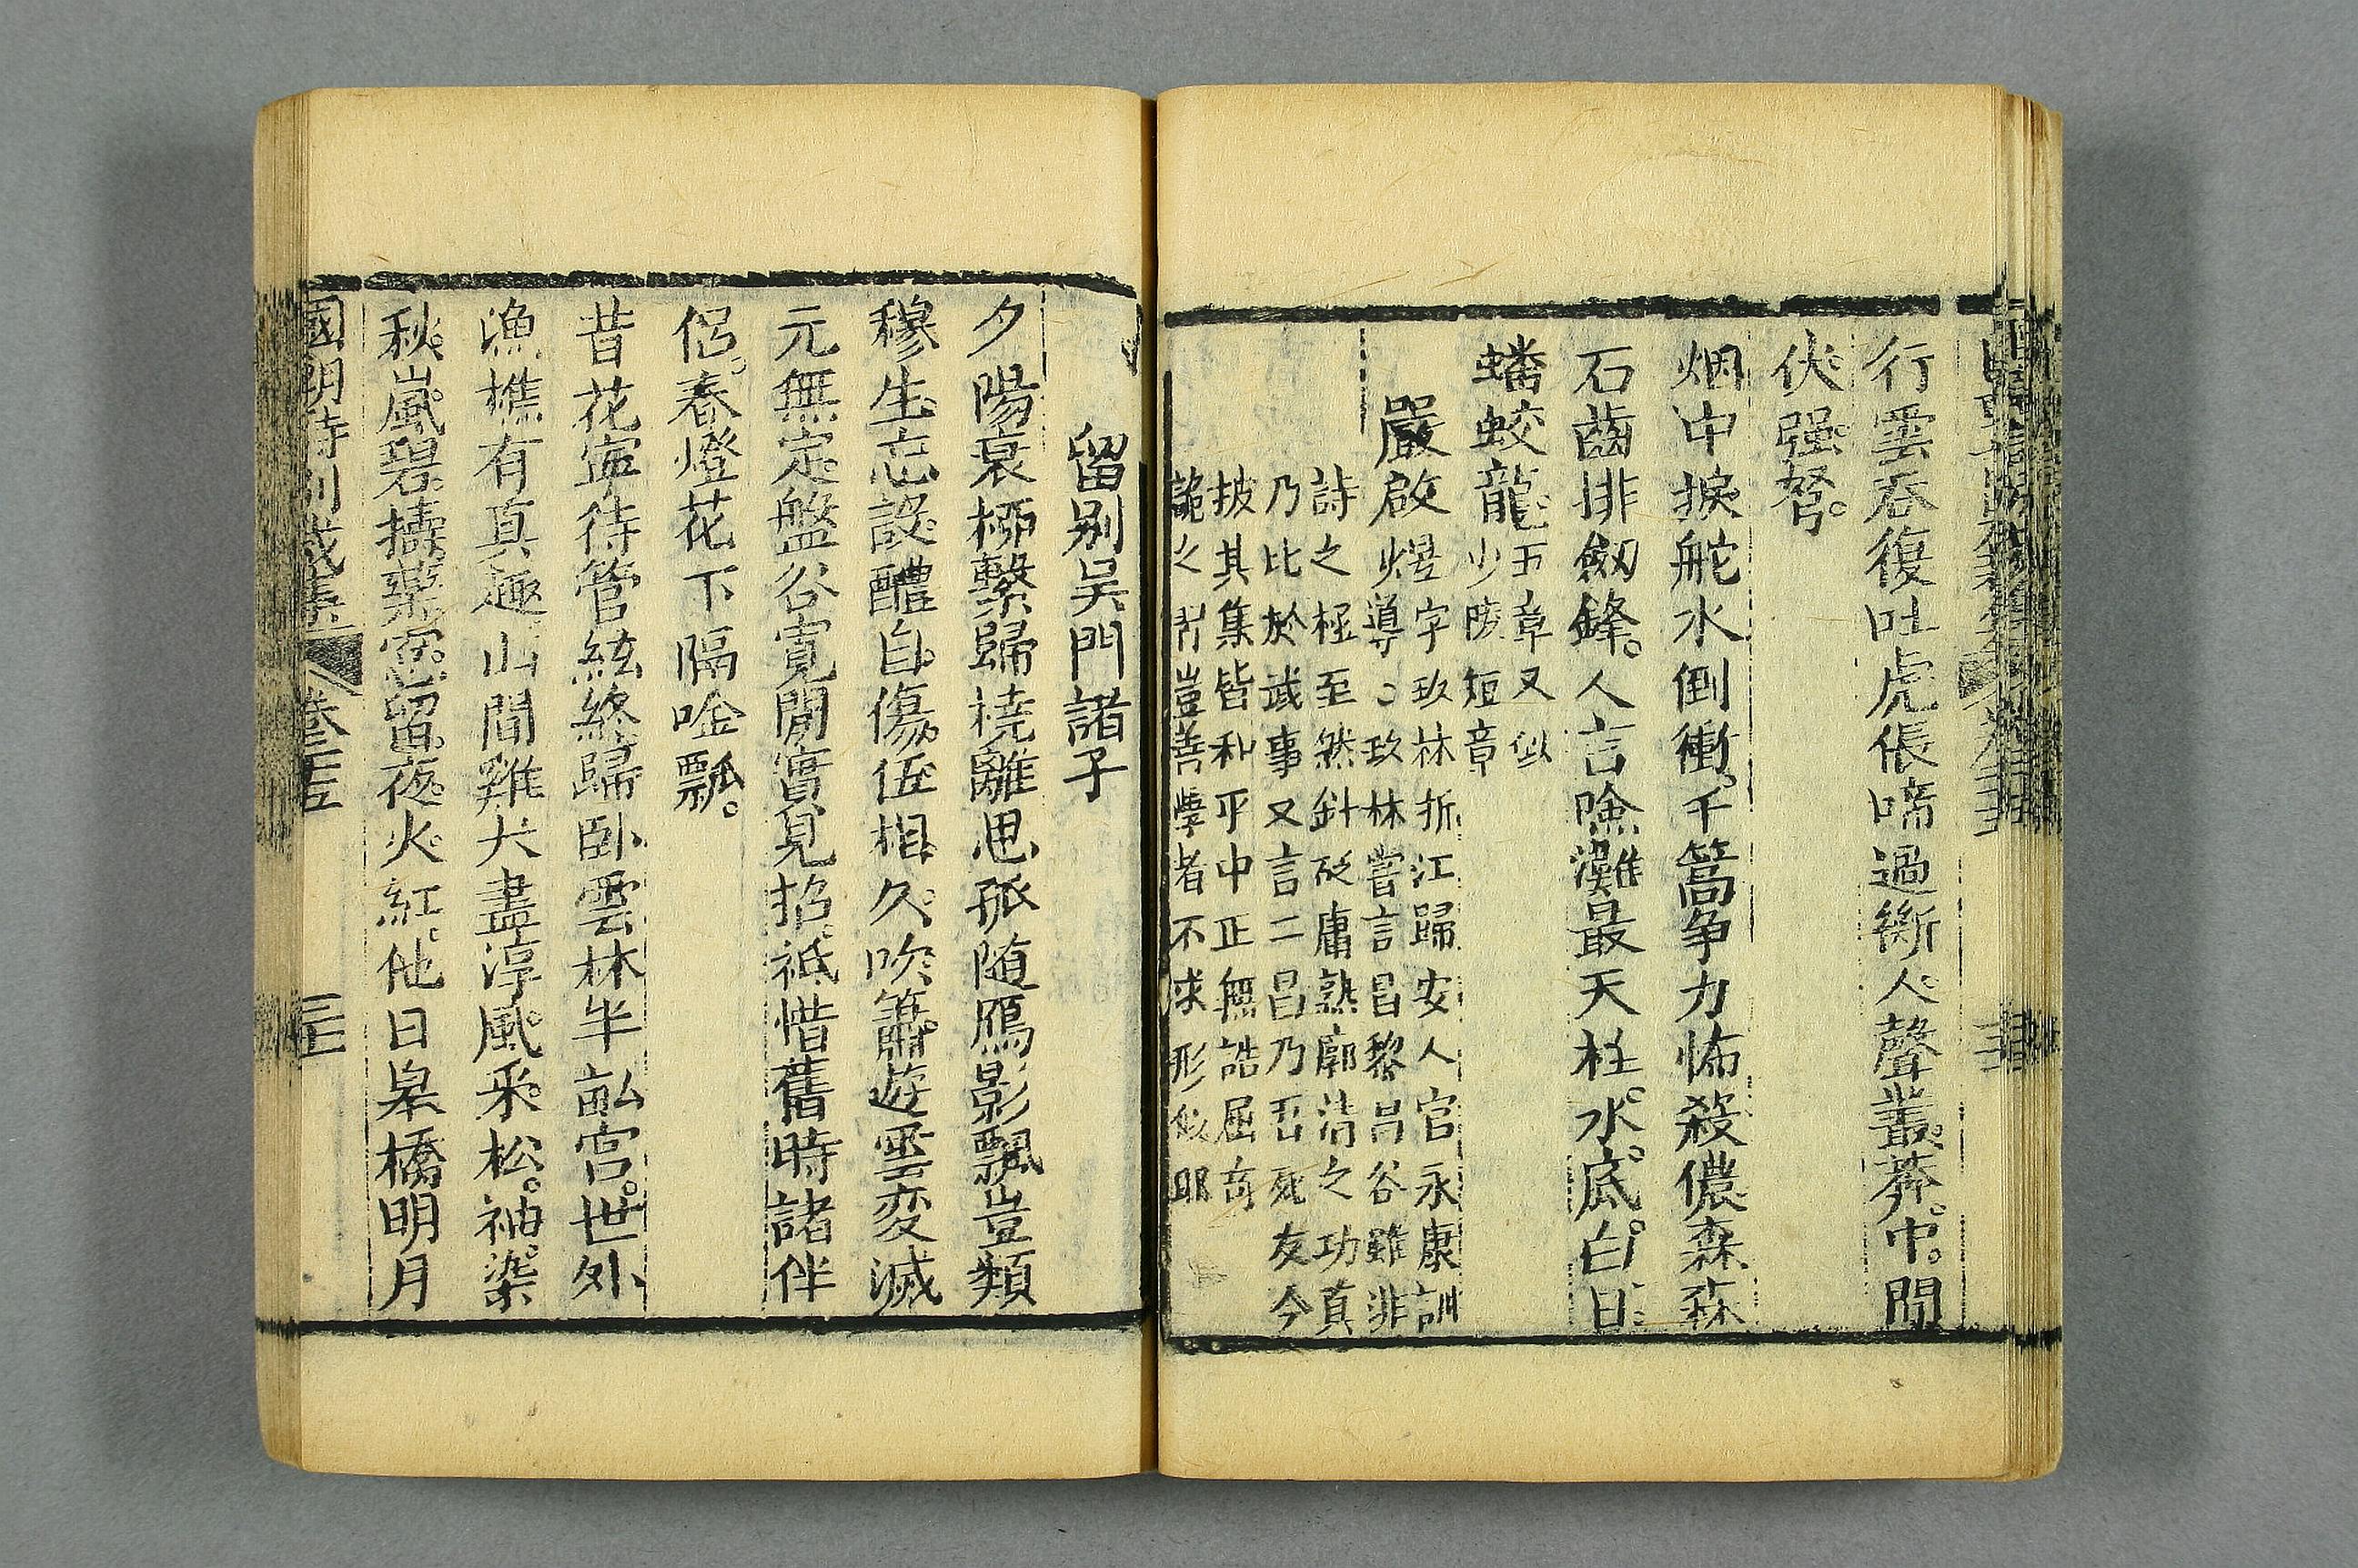 行雲吞復吐虎倀啼過嶄人聲叢莽中間
伏强弩
烟中捩舵水倒衝千篙争力怖殺儂森森
石齒排劔鋒人言險灘最天柱水底白日
蟠蛟龍
五章又似
少陵短章
嚴啟煜
字玖林折江歸安人官永康訓
導〻玖林嘗言昌黎昌谷雖非
詩之極至然針砭庸熟廓清之功真
乃比於武事又言二昌乃吾死友今
披其集皆和平中正無詰屈奇
詭之習豈善學者不求形似耶
留别吴門諸子
夕陽衰栁繫歸橈離思孤随鴈影飄豈類
穆生忘設醴自傷伍相久吹簫遊雲変滅
元無定盤谷寛閒實見招祗惜舊時諸伴
侣春燈花下隔唫瓢
昔花寍待管絃終歸卧雲林半畆宫世外
漁樵有真趣山間雞犬盡淳風釆松袖染
秋嵐碧擣藥窓留夜火紅他日皐橋明月
國朝詩别裁集
卷三五
三七